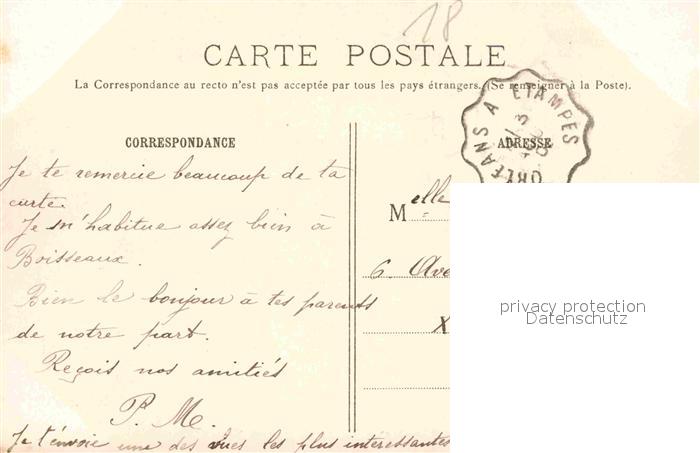 18
CARTE POSTALE
La Correspondance au recto n'est pas acceptée par tous les pays étrangers. (Se renseigner à la Poste).
ORLÉANS A ETAMPES
CORRESPONDANCE
Je te remercie beaucoup de ta
carte.
Je m'habitue assez bien à
Boisseaux.
Bien le bonjour à tes parents
de notre part.
Reçois nos amitiés
P. M.
Je t'envoie une des vues les plus interessantes
ADRESSE
Melle
6. Ave
X
privacy protection
Datenschutz